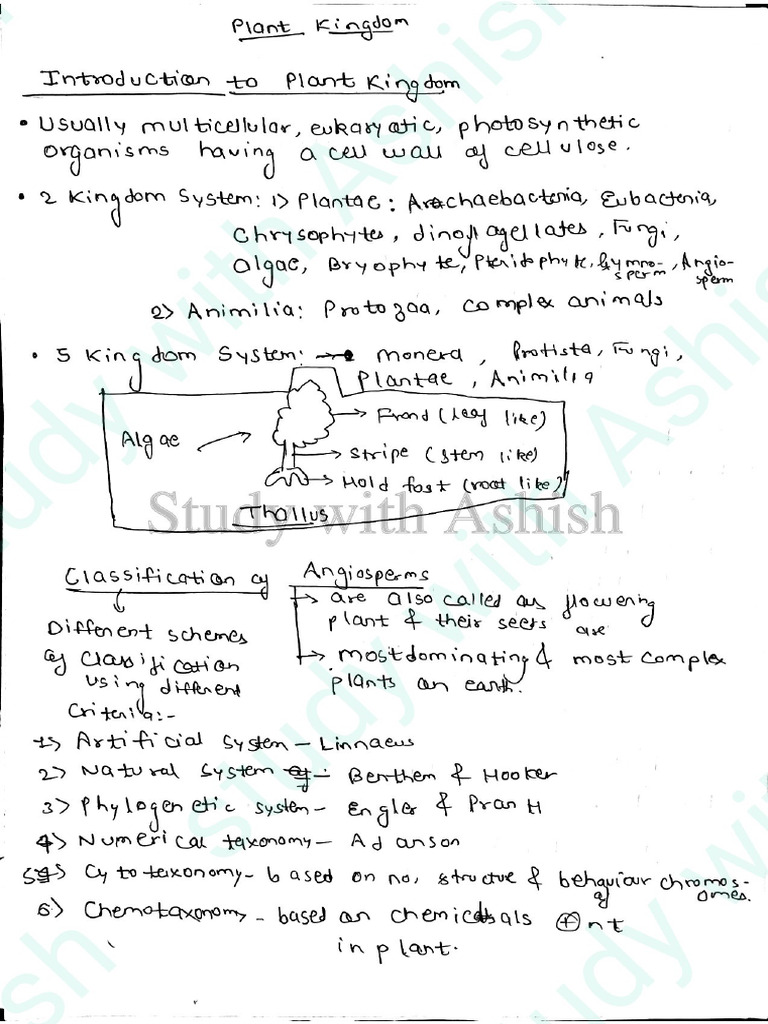 Plant Kingdom
Introduction to Plant Kingdom
• Usually multicellular, eukaryotic, photosynthetic
organisms having a cell wall of cellulose.
• 2 Kingdom System: 1> Plantae: Arachaebacteria, Eubacteria,
Chrysophytes, dinoflagellates, Fungi,
algae, Bryophyte, Pteridophyte, Gymno-sperm, Angio-sperm
2> Animilia: Protozoa, complex animals
• 5 Kingdom System: → monera, Protista, Fungi,
Plantae, Animilia
Algae → Frond (leaf like)
→ stripe (stem like)
→ Hold fast (root like)
Thallus
Study with Ashish
Classification of Angiosperms
→ are also called as flowering
plant & their seets are
→ most dominating & most complex
plants on earth.
Different schemes
of Classification
using different
Criteria:-
1> Artificial System – Linnaeus
2> Natural System – Benthem & Hooker
3> Phylogenetic system – Engler & Prantl
4> Numerical taxonomy – Adanson
5> Cytotaxonomy – based on no, structure & behaviour of chromos-omes.
6> Chemotaxonomy – based on chemicals ⊕nt
in plant.